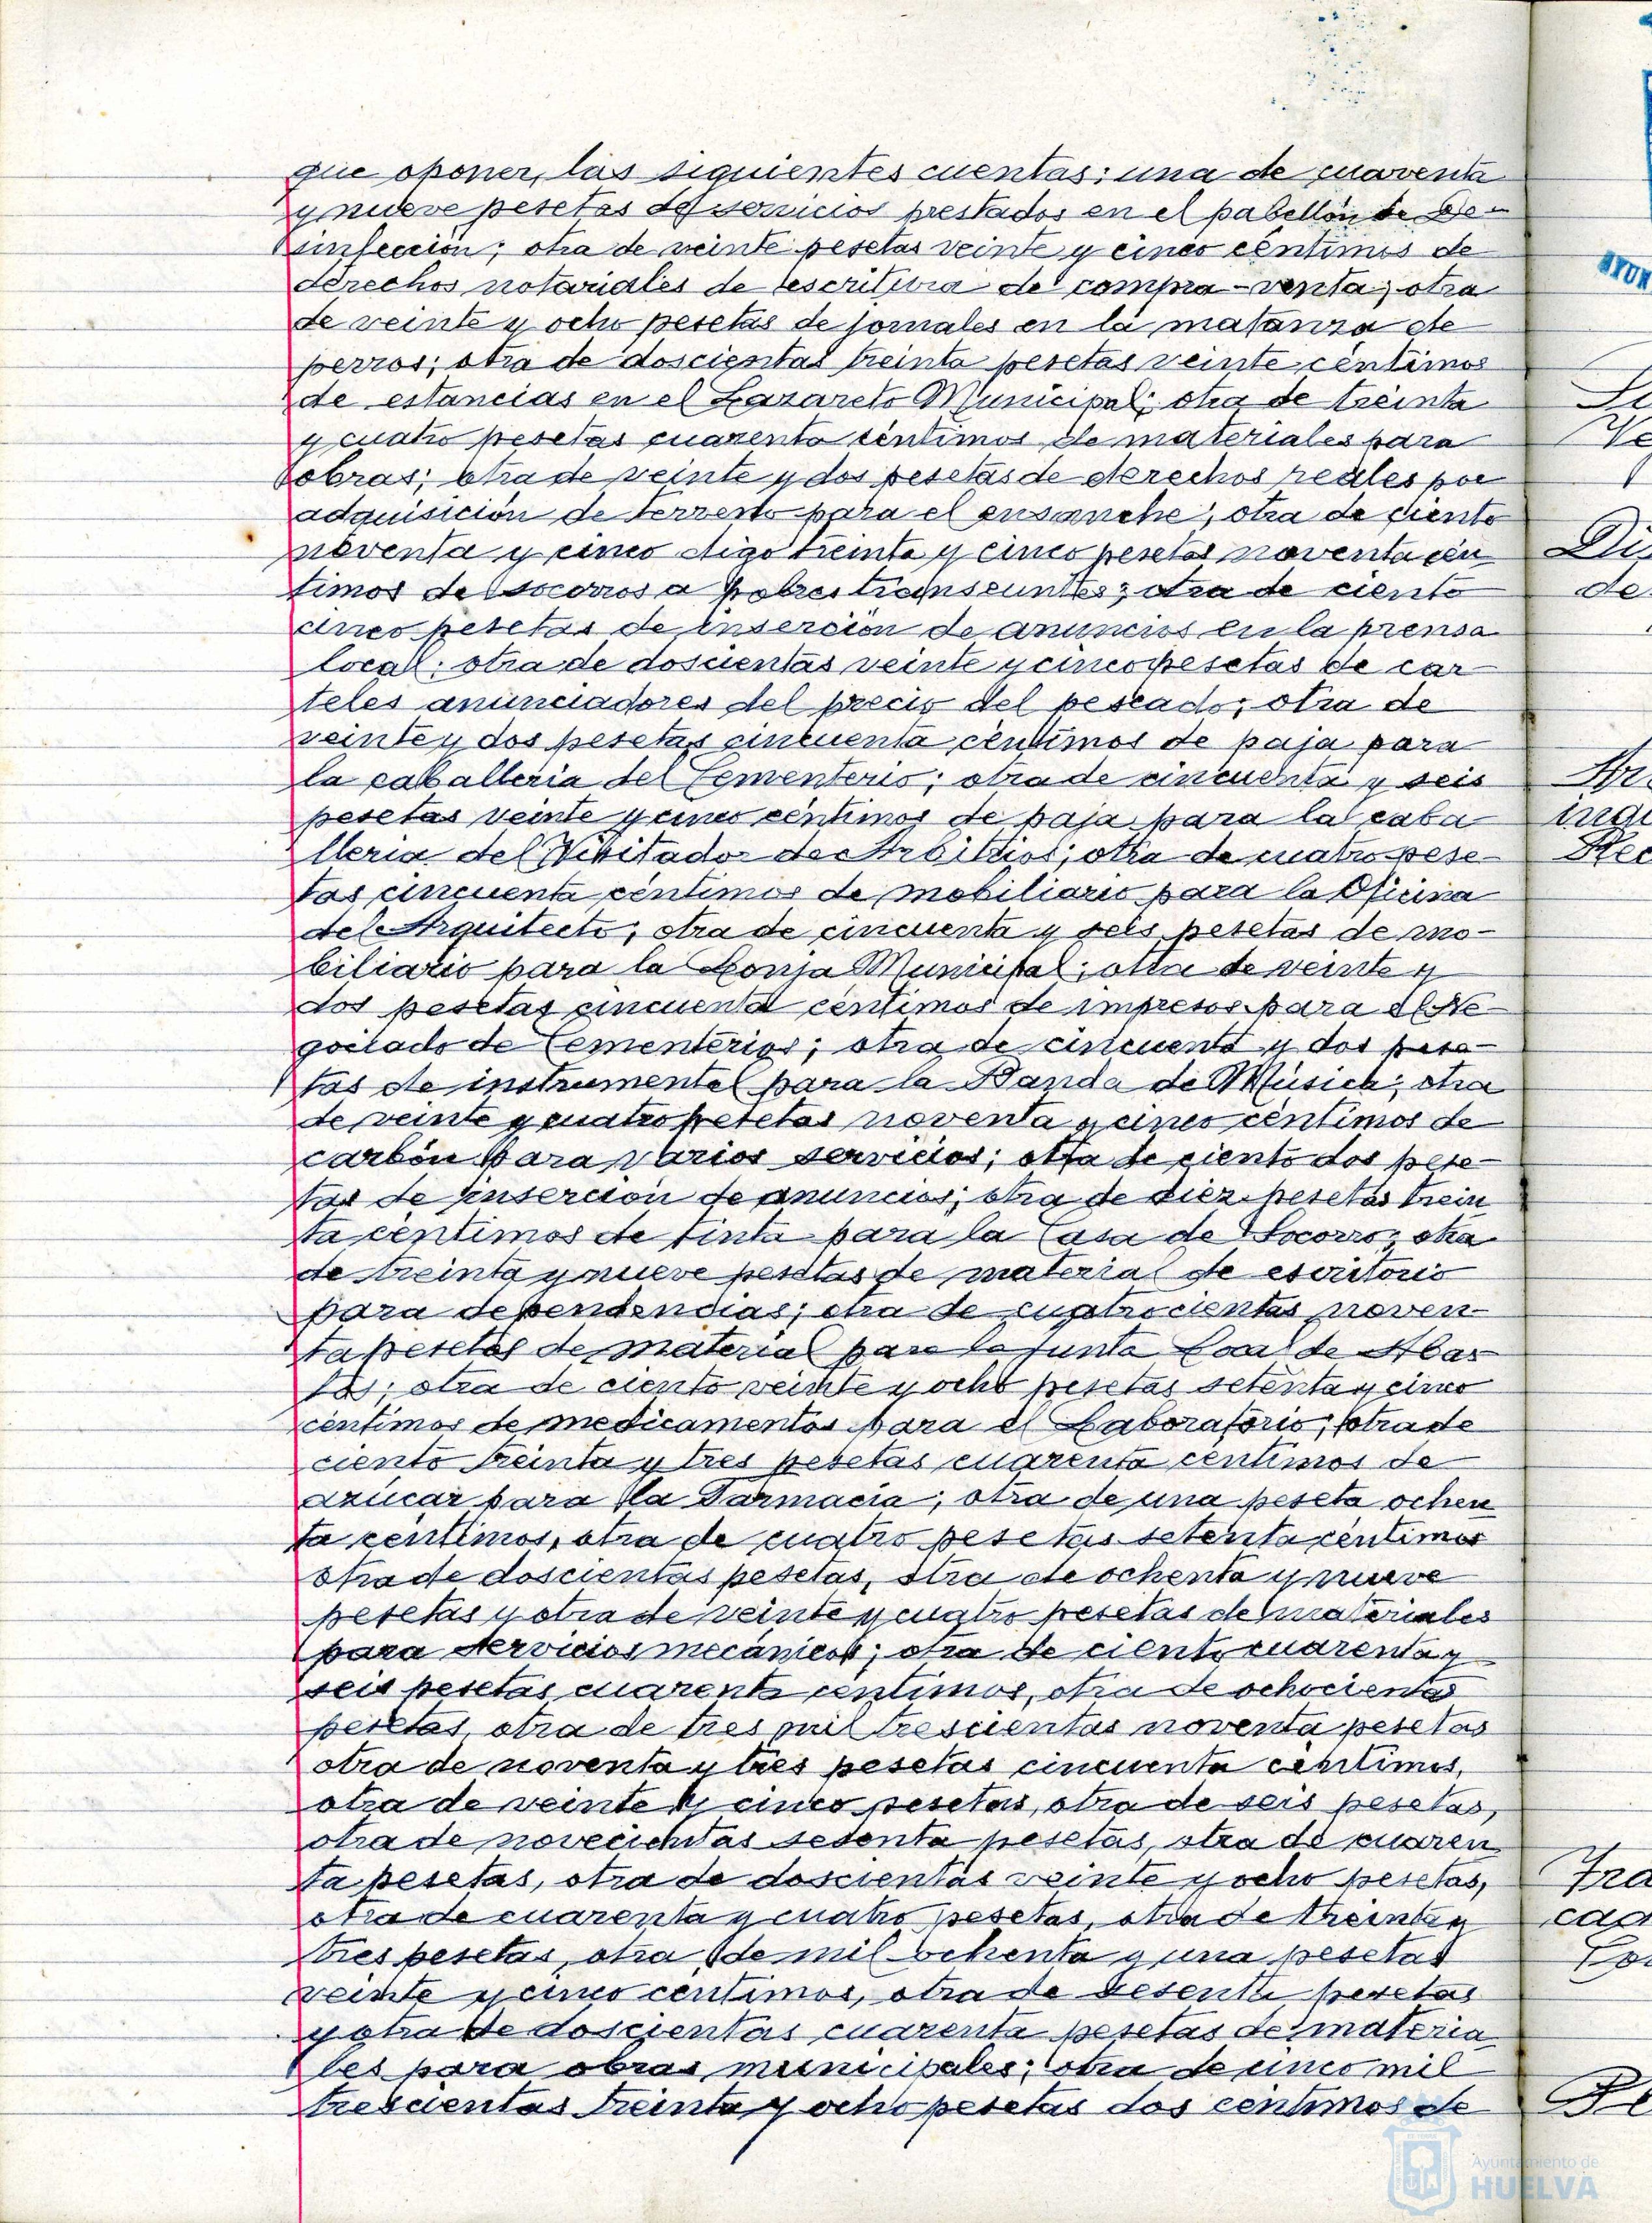 que oponer, las siguientes cuentas: una de cuarenta
y nueve pesetas de servicios prestados en el pabellón de De-
sinfección; otra de veinte pesetas veinte y cinco céntimos de
derechos notariales de escritura de compra-venta; otra
de veinte y ocho pesetas de jornales en la matanza de
perros; otra de doscientas treinta pesetas veinte céntimos
de estancias en el Lazareto Municipal; otra de treinta
y cuatro pesetas cuarenta céntimos de materiales para
obras; otra de veinte y dos pesetas de derechos reales por
adquisición de terreno para el ensanche; otra de ciento
noventa y cinco digo treinta y cinco pesetas noventa cén
timos de socorros a pobres transeuntes; otra de ciento
cinco pesetas de inserción de anuncios en la prensa
local; otra de doscientas veinte y cinco pesetas de car-
teles anunciadores del precio del pescado; otra de
veinte y dos pesetas cincuenta céntimos de paja para
la caballeria del Cementerio; otra de cincuenta y seis
pesetas veinte y cinco céntimos de paja para la caba-
lleria del Visitador de Arbitrios; otra de cuatro pese-
tas cincuenta céntimos de mobiliario para la Oficina
del Arquitecto; otra de cincuenta y seis pesetas de mo-
biliario para la Lonja Municipal; otra de veinte y
dos pesetas cincuenta céntimos de impresos para el Ne-
gociado de Cementerios; otra de cincuenta y dos pese-
tas de instrumental para la Banda de Música; otra
de veinte y cuatro pesetas noventa y cinco céntimos de
carbón para varios servicios; otra de ciento dos pese-
tas de inserción de anuncios; otra de diez pesetas trein
ta centimos de tinta para la Casa de Socorro; otra
de treinta y nueve pesetas de material de escritorio
para dependencias; otra de cuatrocientas noven-
ta pesetas de material para la Junta Local de Abas-
tos; otra de ciento veinte y ocho pesetas setenta y cinco
céntimos de medicamentos para el Laboratorio; otra de
ciento treinta y tres pesetas cuarenta centimos de
azúcar para la Farmacia; otra de una peseta ochen
ta céntimos, otra de cuatro pesetas setenta céntimos
otra de doscientas pesetas, otra de ochenta y nueve
pesetas y otra de veinte y cuatro pesetas de materiales
para servicios mecánicos; otra de ciento cuarenta y
seis pesetas cuarenta centimos, otra de ochocientas
pesetas, otra de tres mil trescientas noventa pesetas
otra de noventa y tres pesetas cincuenta céntimos,
otra de veinte y cinco pesetas, otra de seis pesetas,
otra de novecientas sesenta pesetas, otra de cuaren
ta pesetas, otra de doscientas veinte y ocho pesetas,
otra de cuarenta y cuatro pesetas, otra de treinta y
tres pesetas, otra de mil ochenta y una pesetas
veinte y cinco centimos, otra de sesenta pesetas
y otra de doscientas cuarenta pesetas de materia-
les para obras municipales; otra de cinco mil
trescientas treinta y ocho pesetas dos centimos de
Ayuntamiento de
HUELVA